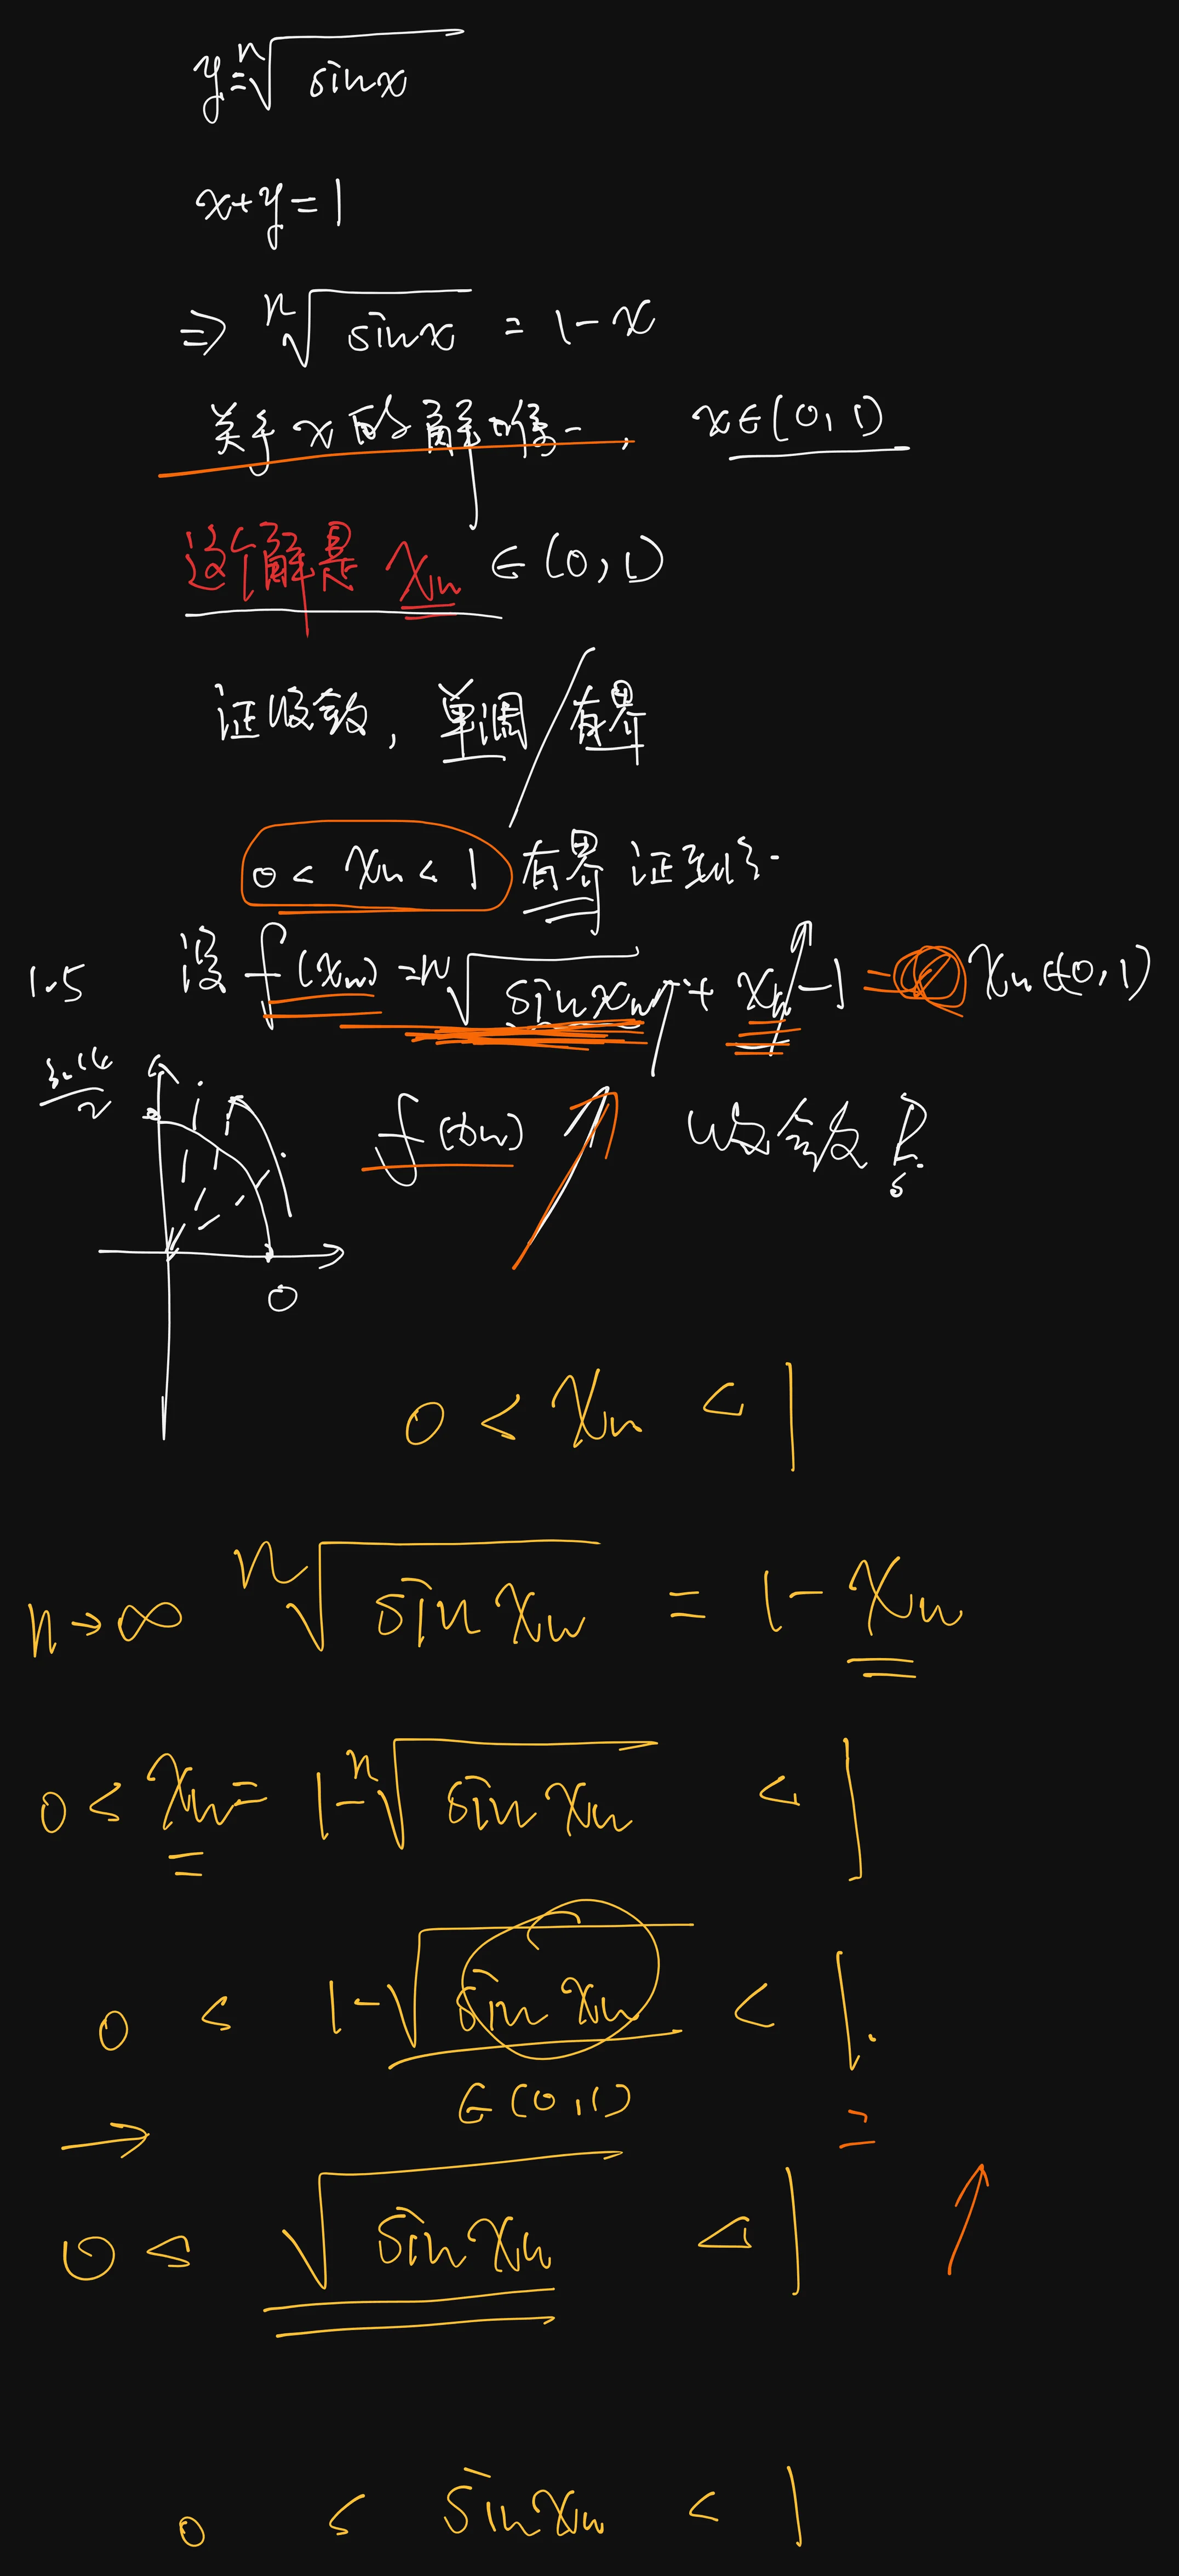 y=ⁿ√sinx
x+y=1
⇒ ⁿ√sinx = 1-x
关于x的解唯一, x∈(0,1)
这个解是 xₙ ∈(0,1)
证收敛, 单调/有界
0<xₙ<1 有界 证到了.
1.5 设 f(xₙ)=ⁿ√sinxₙ + xₙ-1 = xₙ∈(0,1)
3.14/2
f(xₙ) 收敛
0
0<xₙ<1
n→∞ ⁿ√sinxₙ = 1-xₙ
0<xₙ=1-ⁿ√sinxₙ <1
0 < 1-√sinxₙ < 1.
∈(0,1)
→
0< √sinxₙ <1
0 < sinxₙ < 1